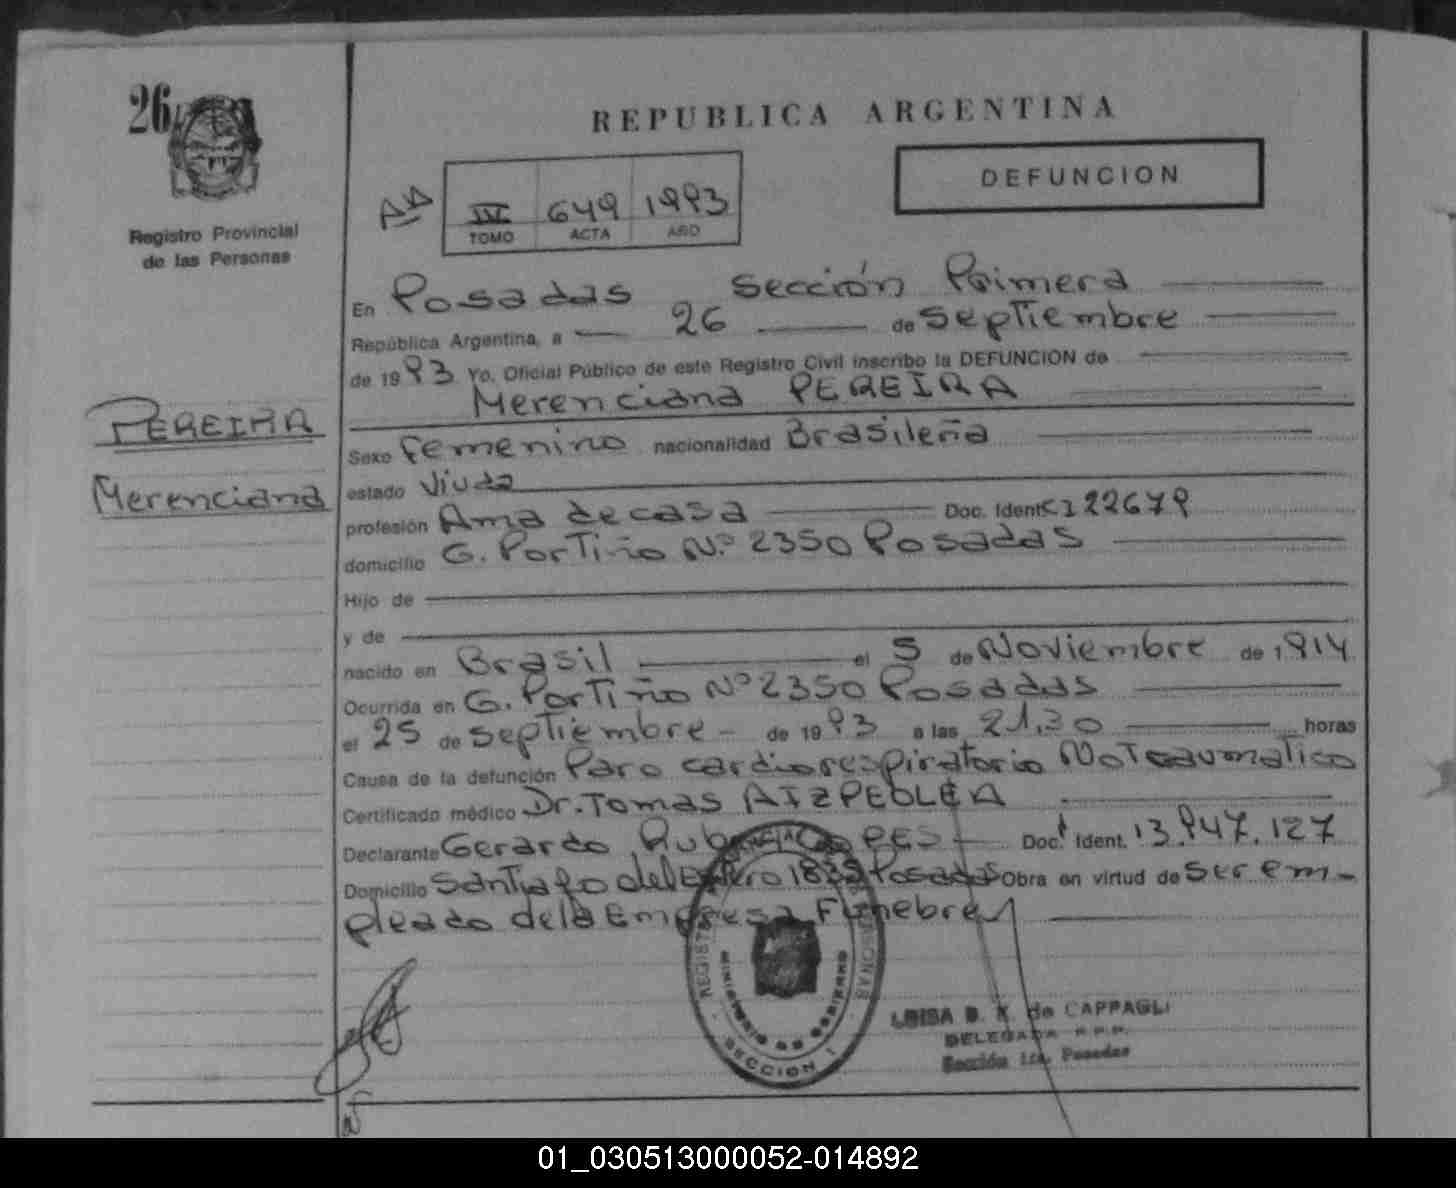 26
REPUBLICA ARGENTINA
DEFUNCION
AA
IV 649 1993
TOMO ACTA AÑO
Registro Provincial
de las Personas
En Posadas Sección Primera
República Argentina, a 26 de Septiembre
de 1993 Yo, Oficial Público de este Registro Civil inscribo la DEFUNCION de
Merenciana PEREIRA
PEREIRA
Merenciana
Sexo Femenino nacionalidad Brasileña
estado Viuda
profesión Ama de casa Doc. Ident. CI 22679
domicilio G. Portiño N.º 2350 Posadas
Hijo de
y de
nacido en Brasil el 5 de Noviembre de 1914
Ocurrida en G. Portiño Nº 2350 Posadas
el 25 de Septiembre - de 1993 a las 21,30 horas
Causa de la defunción Paro cardiorespiratorio No Traumatico
Certificado médico Dr. Tomas AIZPEOLEA
Declarante Gerardo Doc. Ident. 13.947.127
Domicilio Santiago del Estero Posadas Obra en virtud de Ser em-
pleado de la Empresa Funebre
MINISTERIO DE GOBIERNO
SECCION 1
LUISA B. K. de CAPPAGLI
DELEGADA R.P.P.
Sección 1ra. Posadas
01_030513000052-014892